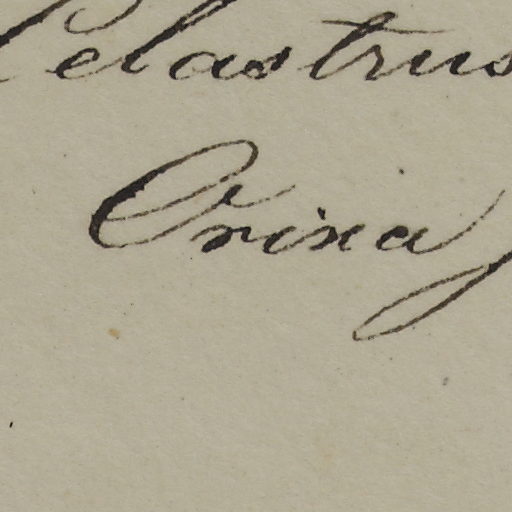 Celastrus
Orixa